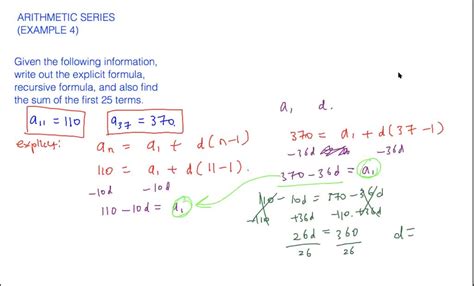 ARITHMETIC SERIES
(EXAMPLE 4)
Given the following information,
write out the explicit formula,
recursive formula, and also find
the sum of the first 25 terms.
a₁₁ = 110
a₃₇ = 370
explicit:
aₙ = a₁ + d(n-1)
110 = a₁ + d(11-1).
-10d -10d
110 - 10d = a₁
a₁ d.
370 = a₁ + d(37-1)
-36d -36d
370 - 36d = a₁
110 - 10d = 370 - 36d
-110 +36d -110 +36d
26d = 360
26 26
d =